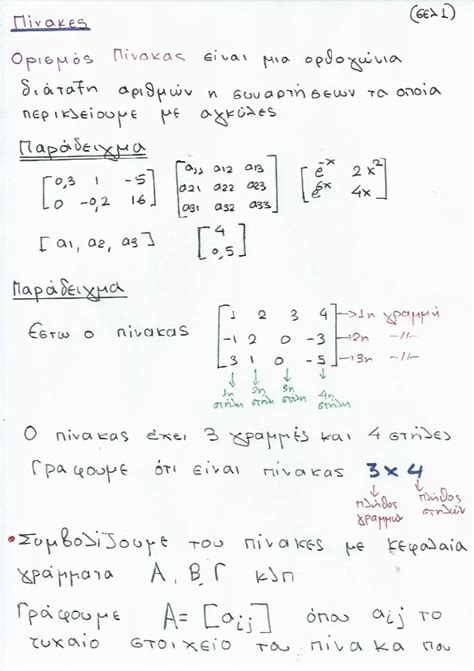 Πίνακες (σελ 1)
Ορισμός Πίνακας είναι μια ορθογώνια
διάταξη αριθμών η συναρτήσεων τα οποία
περικλείουμε με αγκύλες
Παράδειγμα
[0,3 1 -5] [a11 a12 a13] [e^-x 2x^2]
[0 -0,2 16] [a21 a22 a23] [e^6x 4x]
[a31 a32 a33]
[a1, a2, a3] [4]
[0,5]
Παράδειγμα
[1 2 3 4] → 1η γραμμή
Έστω ο πίνακας [-1 2 0 -3] → 2η -//-
[3 1 0 -5] → 3η -//-
1η στήλη 2η στήλη 3η στήλη 4η στήλη
Ο πίνακας έχει 3 γραμμές και 4 στήλες
Γράφουμε ότι είναι πίνακας 3 x 4
πλήθος γραμμών πλήθος στηλών
• Συμβολίζουμε του πίνακες με κεφαλαία
γράμματα A, B, Γ κλπ
Γράφουμε A = [aij] όπου aij το
τυχαίο στοιχείο του πίνακα που